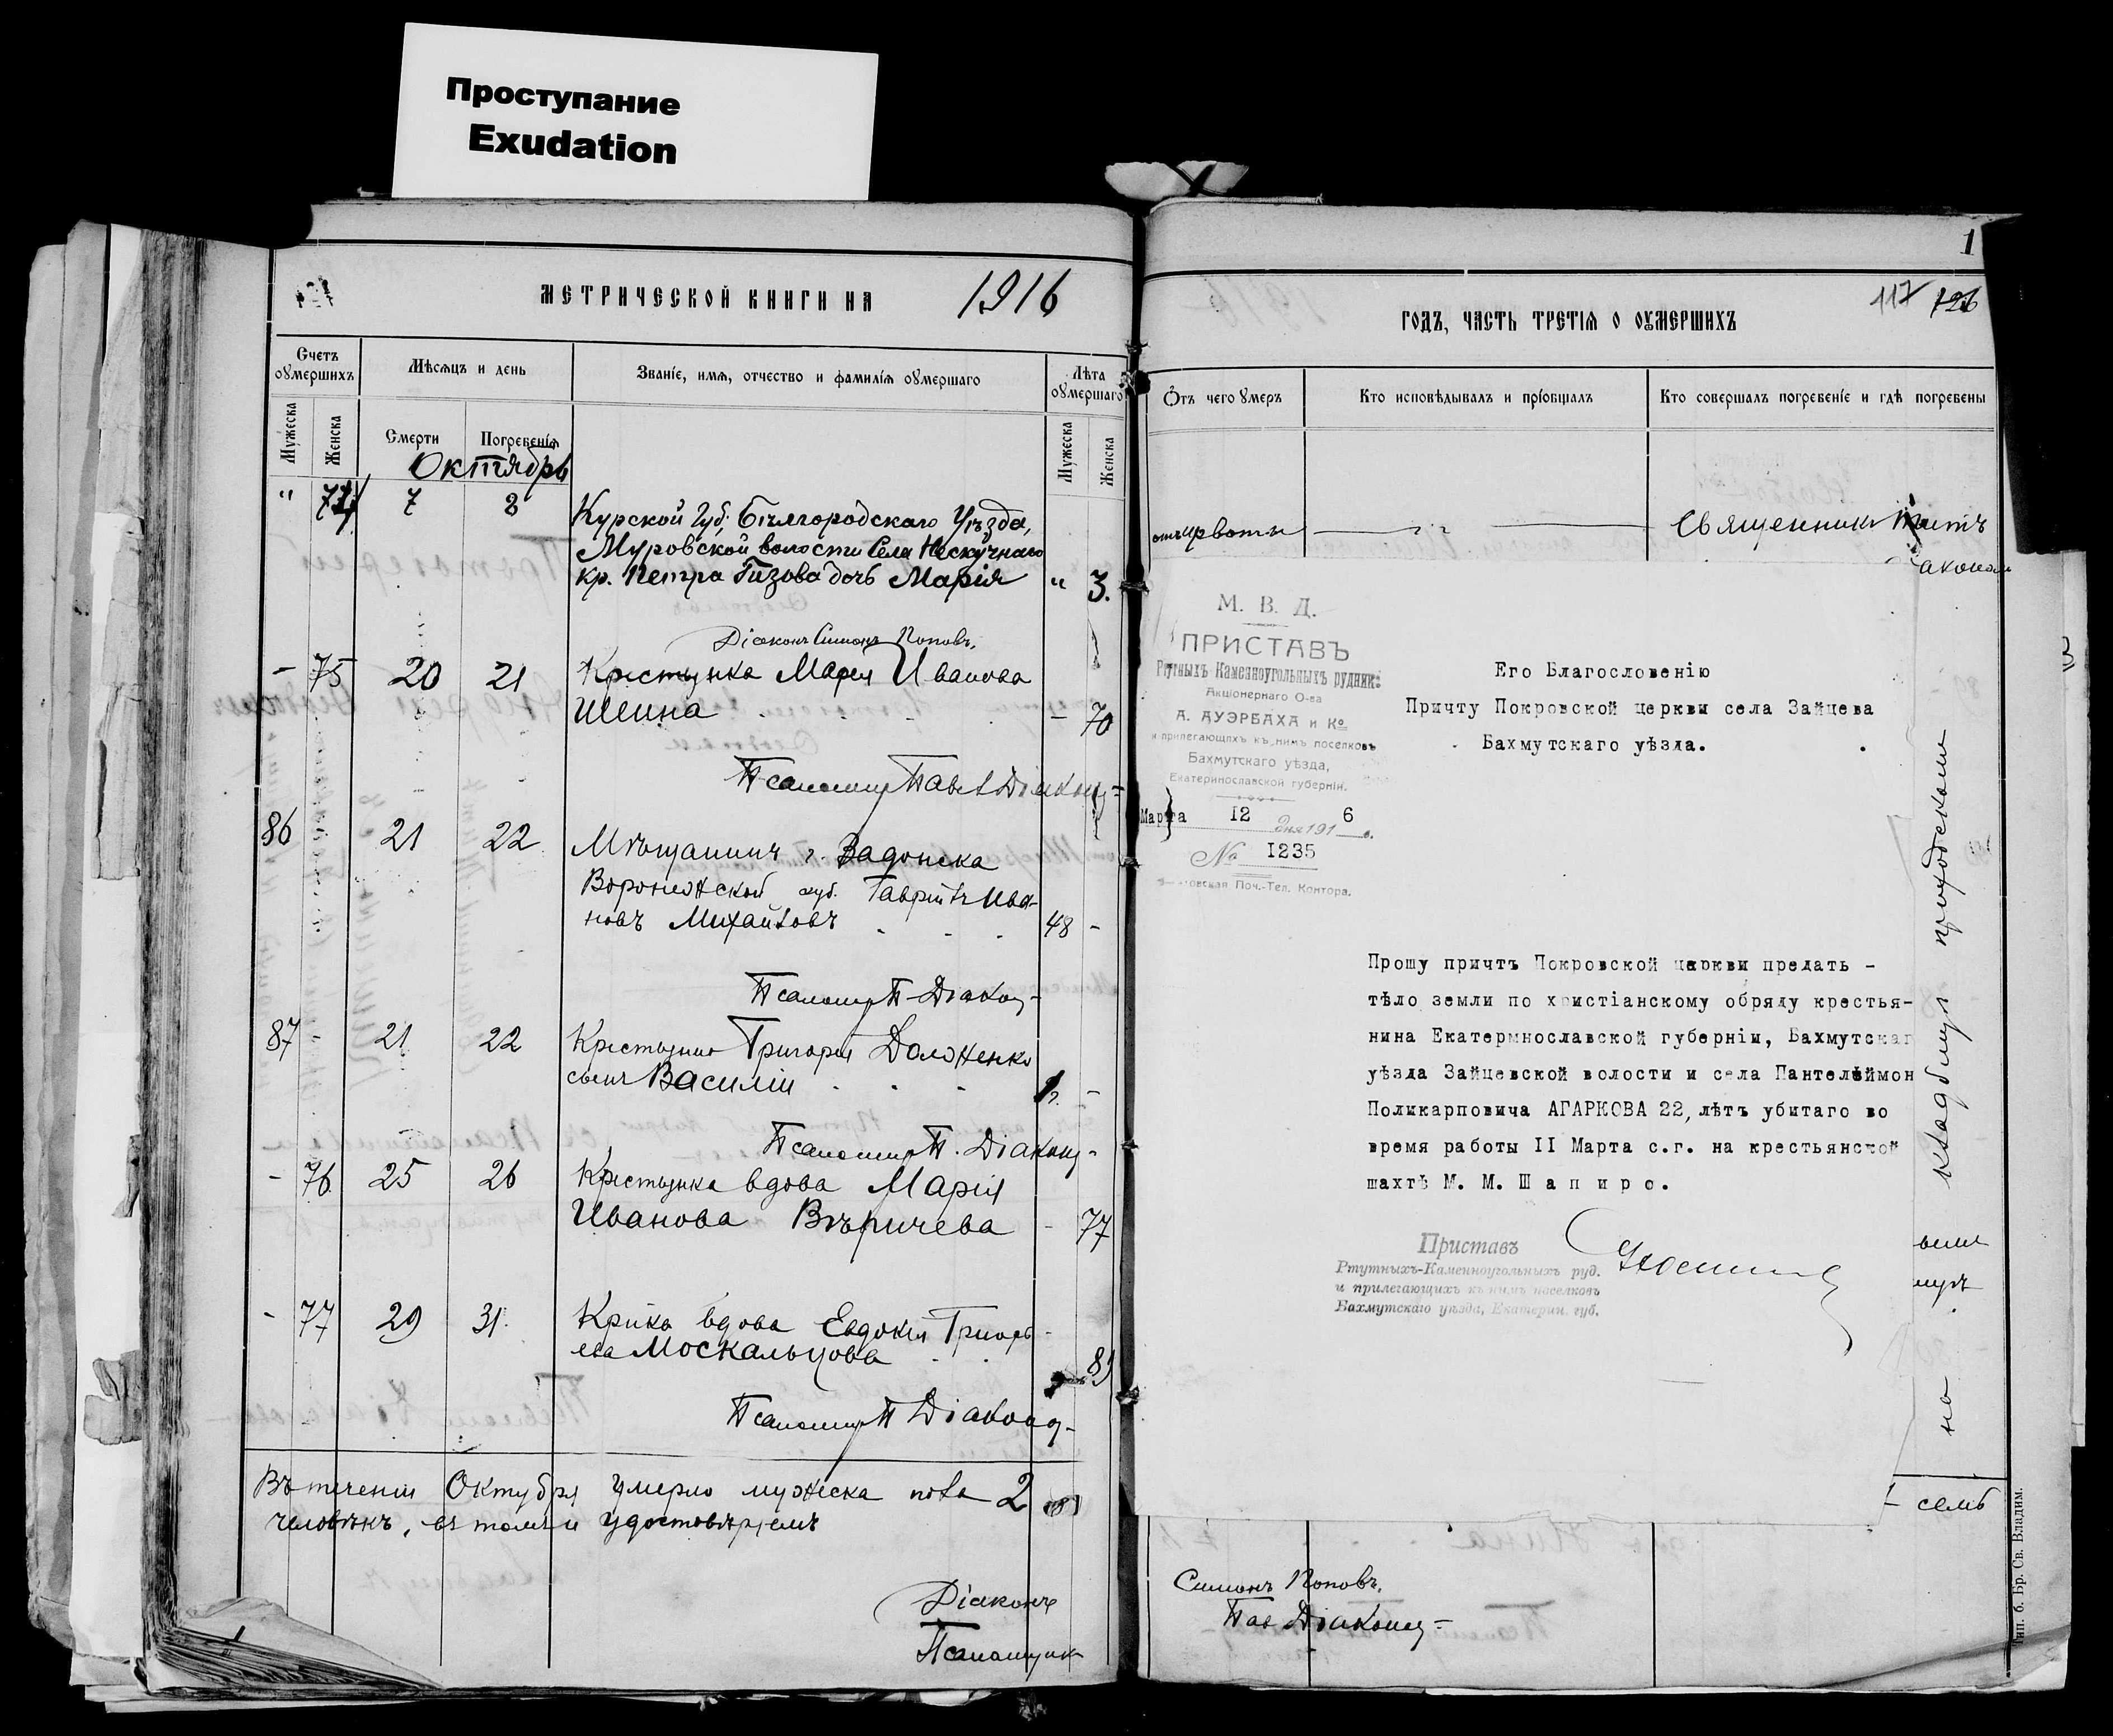 Проступание
Exudation
МЕТРИЧЕСКОЙ КНИГИ НА 1916
Счетъ оумершихъ
Мѣсяцъ и день
Званіе, имя, отчество и фамилія оумершаго
Лѣта оумершаго
Мужеска
Женска
Смерти
Погребенія
Мужеска
Женска
Октябрь
" 74 7 8
Курской Губ. Бѣлгородскаго Уѣзда,
Муровской волости Села Нескучнаго
кр. Петра Гизова дочь Марія " 3.
Діаконъ Симонъ Поповъ.
- 75 20 21 Крестьянка Марія Иванова
Шеина - 70
86 21 22 Мѣщанинъ г. Задонска
Воронежской губ. Гавріилъ Ива-
новъ Михайловъ 48 -
87 - 21 22 Крестьянина Григорія Долженко
сынъ Василій -
- 76 25 26 Крестьянка вдова Марія
Иванова Вѣричева - 77
- 77 29 31. Кр-нка вдова Евдокія Григорь-
ева Москальцова 81
Въ теченіи Октября умерло мужеска пола 2
человѣкъ, въ томъ и удостовѣряемъ
Діаконъ
Псаломщик
1
117 126
ГОДЪ, ЧАСТЬ ТРЕТІЯ О ОУМЕРШИХЪ
Отъ чего умеръ
Кто исповѣдывалъ и пріобщалъ
Кто совершалъ погребеніе и гдѣ погребены
Священникъ
М. В. Д.
ПРИСТАВЪ
Ртутныхъ Каменноугольныхъ рудник.
Акціонернаго О-ва
А. АУЭРБАХА и Ко
и прилегающихъ къ нимъ поселковъ
Бахмутскаго уѣзда,
Екатеринославской губерніи.
Марта 12 дня 1916 г.
№ 1235
Поч.-Тел. Контора.
Его Благословенію
Причту Покровской церкви села Зайцева
Бахмутскаго уѣзда.
Прошу причтъ Покровской церкви предать -
тѣло земли по христіанскому обряду крестья-
нина Екатермнославской губерніи, Бахмутскаг
уѣзда Зайцевской волости и села Пантелѣймон
Поликарповича АГАРКОВА 22, лѣтъ убитаго во
время работы II Марта с.г. на крестьянской
шахтѣ М. М. Шапиро.
Приставъ
Ртутныхъ-Каменноугольныхъ руд.
и прилегающихъ къ нимъ поселковъ
Бахмутскаго уѣзда, Екатерин. губ.
на кладбищѣ приходскомъ
семь
Симонъ Поповъ.
Тип. б. Бр. Св. Владим.